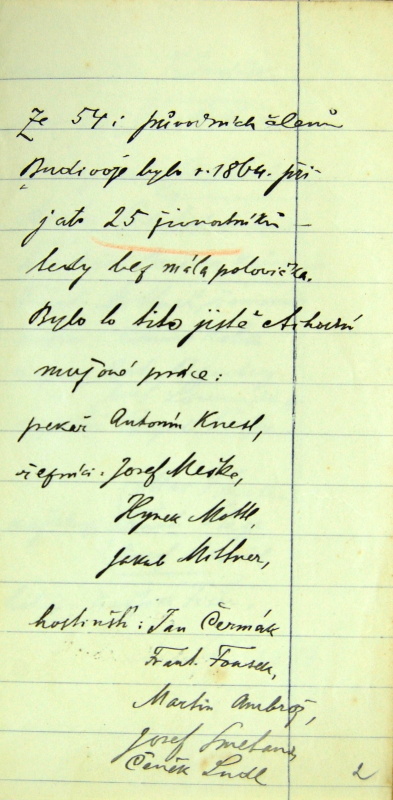 Ze 54 i původních členů
Budivoje bylo r. 1864. při-
jato 25 živnostníků –
tedy bez mála polovička.
Bylo to tito jistě ctihodní
mužové práce:
pekař Antonín Knesl,
řezníci: Josef Meške,
Hynek Mottl,
Jakub Mittner,
hostinští: Jan Čermák
Frant. Fousek,
Martin Ambrož,
Josef Smetana,
Čeněk Ludl
2